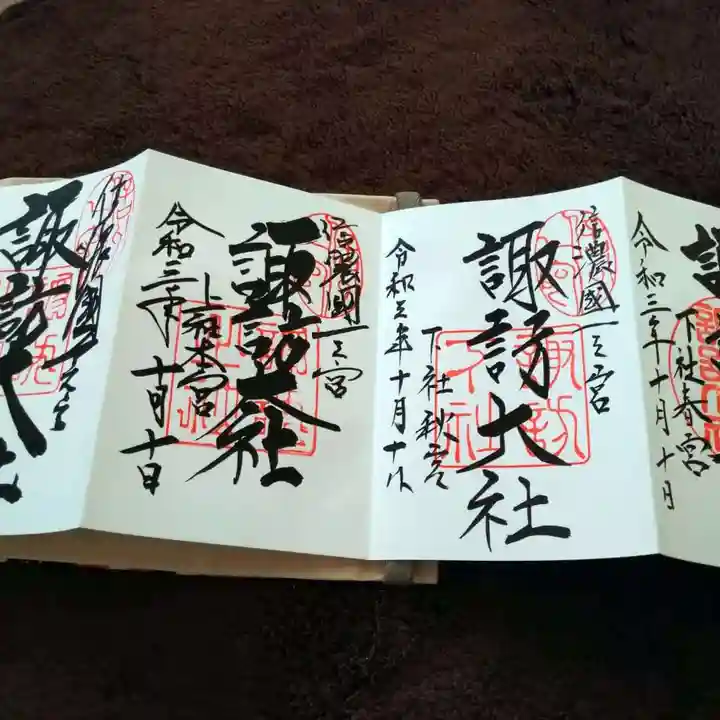 信濃國一之宮
諏訪
下社春宮
令和三年十月十日
信濃國一之宮
諏訪大社
下社秋宮
令和三年十月十日
信濃國一之宮
諏訪大社
上社本宮
令和三年十月十日
信濃國一之宮
諏訪大社